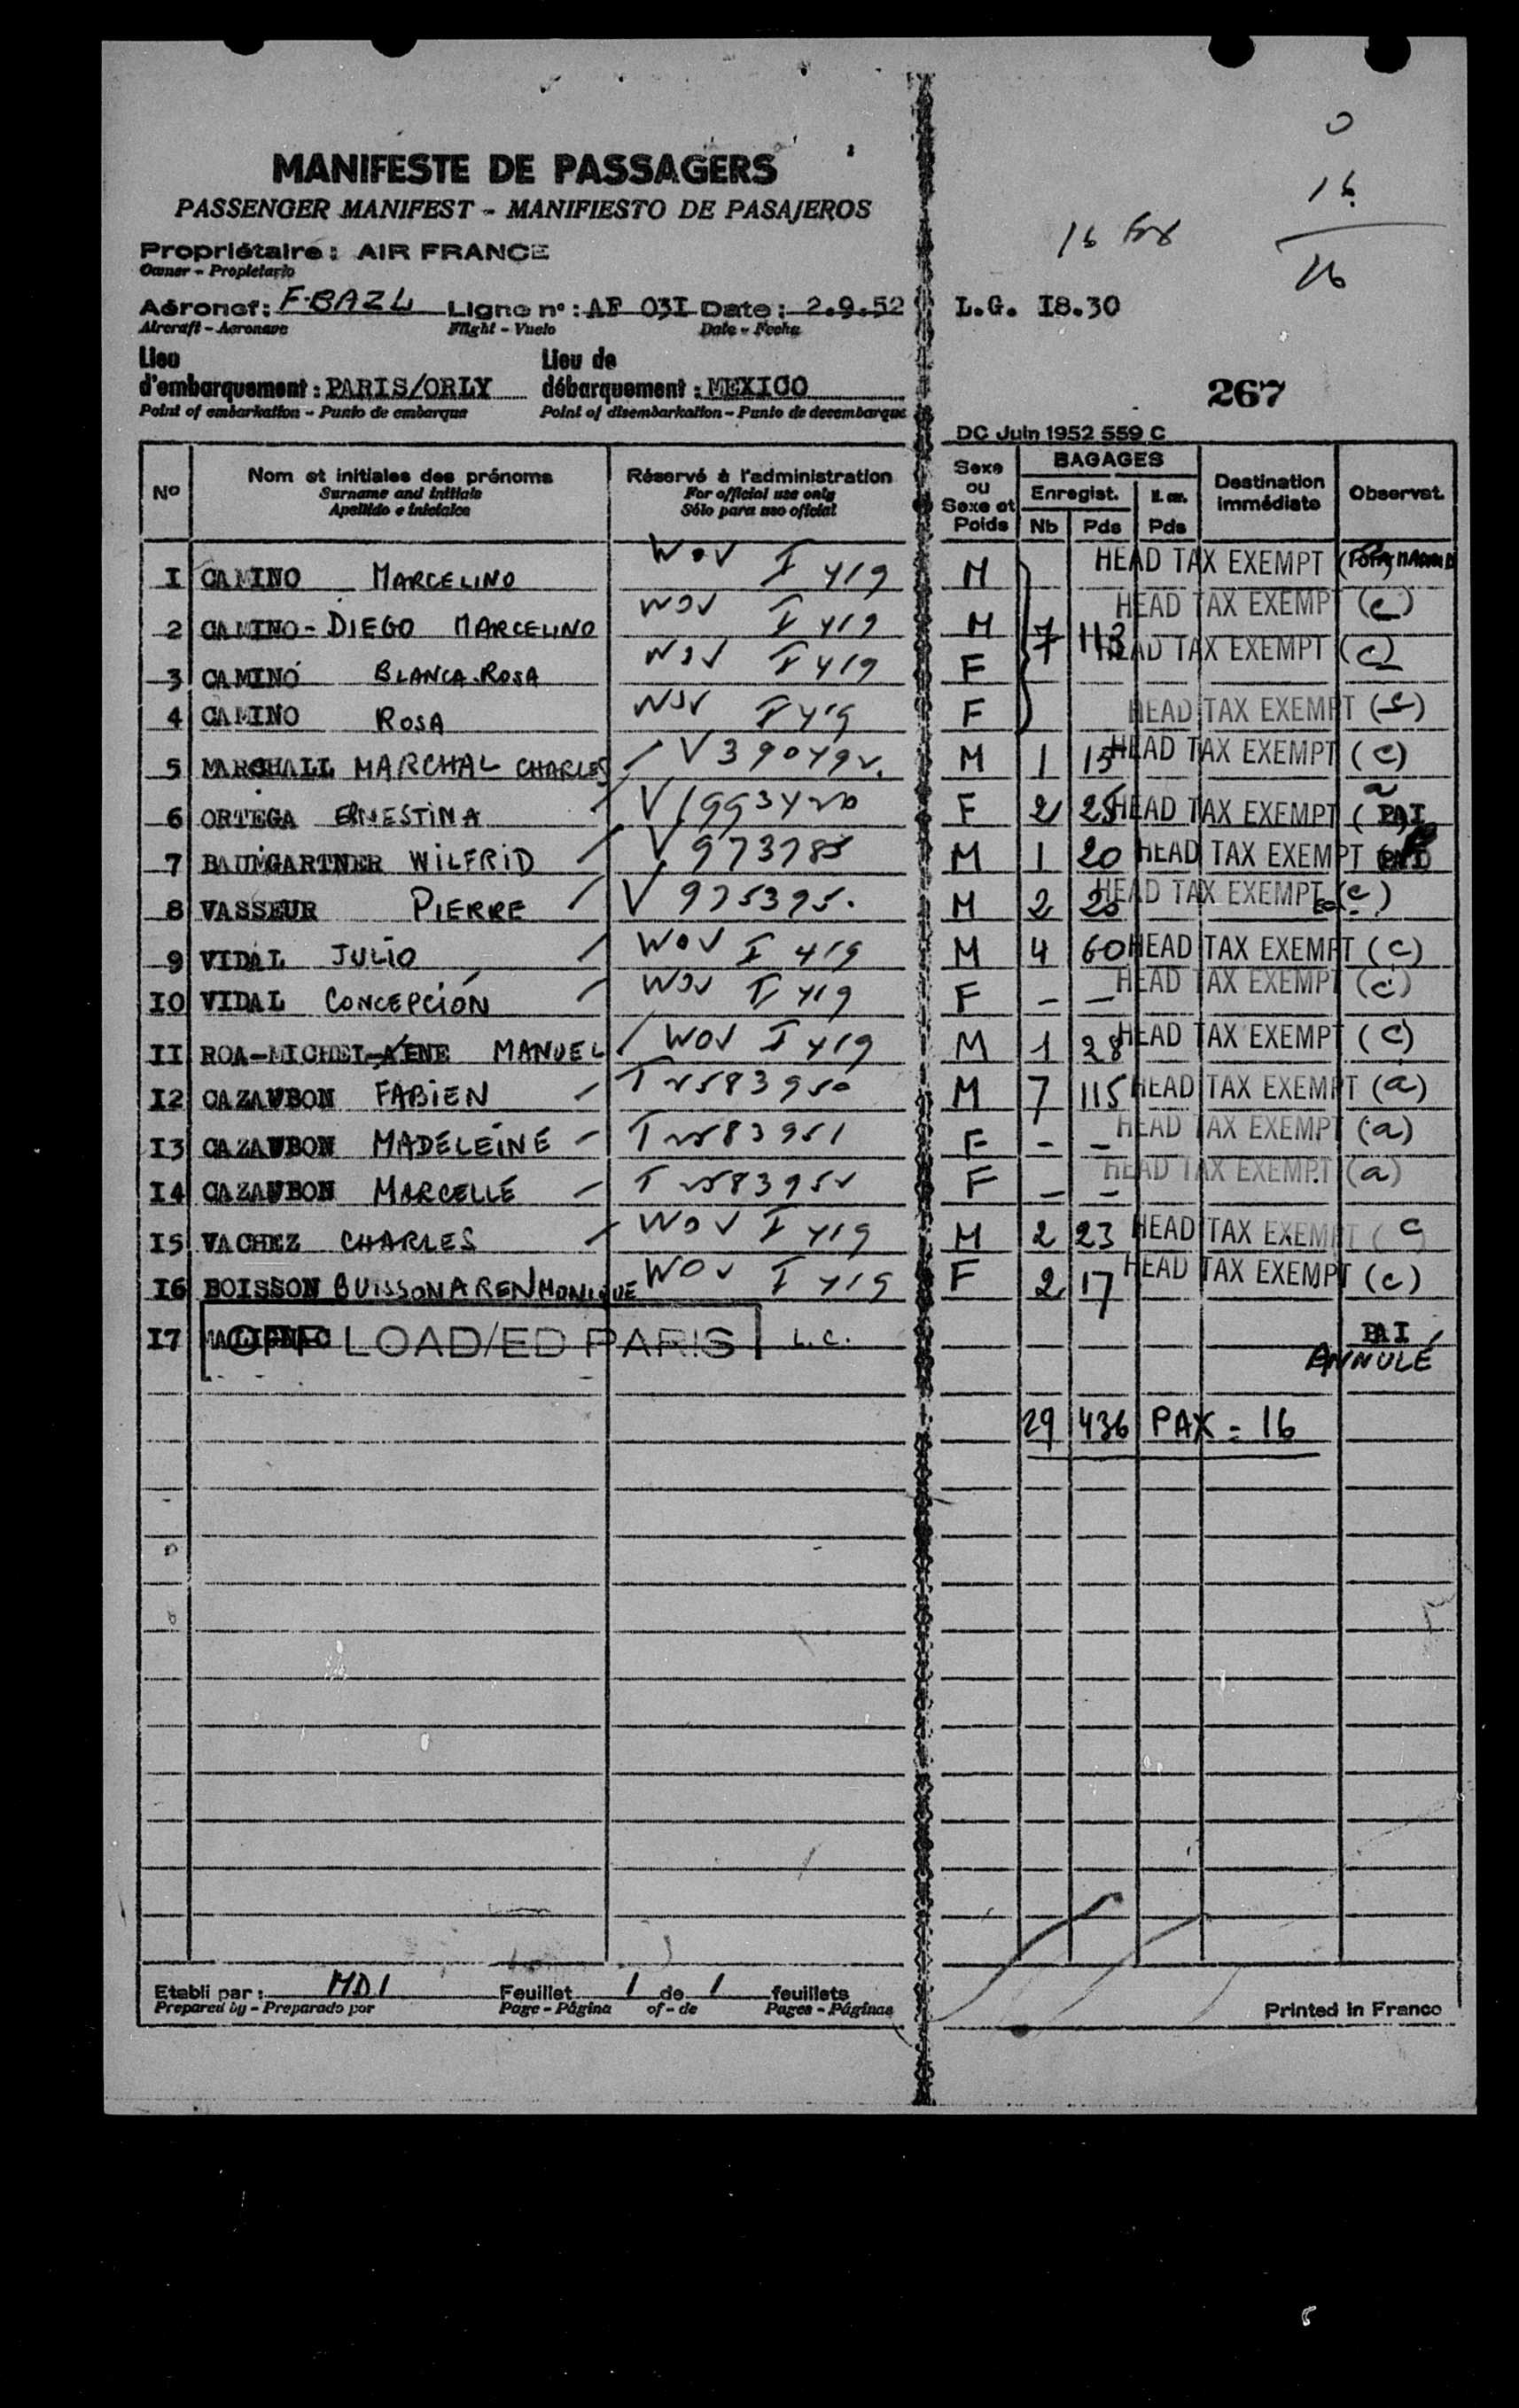 O
16
16 for
16
MANIFESTE DE PASSAGERS
PASSENGER MANIFEST - MANIFIESTO DE PASAJEROS
Propriétaire : AIR FRANCE
Owner - Propietario
Aéronef : F-BAZL Ligne n° : AF 03I Date : 2.9.52 L.G. I8.30
Aircraft - Aeronave Flight - Vuelo Date - Fecha
Lieu d'embarquement : PARIS/ORLY Lieu de débarquement : MEXICO
Point of embarkation - Punto de embarque Point of disembarkation - Punto de desembarque
267
DC Juin 1952 559 C
N° Nom et initiales des prénoms Réservé à l'administration Sexe ou Sexe et Poids BAGAGES Destination immédiate Observat.
Surname and initials For official use only Enregist. N. enr.
Apellido e iniciales Sólo para uso oficial Nb Pds Pds
I CAMINO MARCELINO WOV I 419 M HEAD TAX EXEMPT
2 CAMINO-DIEGO MARCELINO WOV I 419 M 7 113 HEAD TAX EXEMPT (c)
3 CAMINO BLANCA.ROSA WOV I 419 F HEAD TAX EXEMPT (c)
4 CAMINO ROSA WOV I 419 F HEAD TAX EXEMPT (c)
5 MARSHALL MARCHAL CHARLES V 390492. M 1 15 HEAD TAX EXEMPT (c)
6 ORTEGA ERNESTINA V 1993420 F 2 25 HEAD TAX EXEMPT (a) PAI
7 BAUMGARTNER WILFRID V 973785 M 1 20 HEAD TAX EXEMPT PAI
8 VASSEUR PIERRE V 975395. M 2 20 HEAD TAX EXEMPT (c)
9 VIDAL JULIO WOV I 419 M 4 60 HEAD TAX EXEMPT (c)
IO VIDAL CONCEPCIÓN WOV I 419 F - - HEAD TAX EXEMPT (c)
II ROA-MICHEL-XENE MANUEL WOV I 419 M 1 28 HEAD TAX EXEMPT (c)
I2 CAZAUBON FABIEN T 2583950 M 7 115 HEAD TAX EXEMPT (a)
I3 CAZAUBON MADELEINE T 2583951 F - - HEAD TAX EXEMPT (a)
I4 CAZAUBON MARCELLE T 2583952 F - - HEAD TAX EXEMPT (a)
I5 VACHEZ CHARLES WOV I 419 M 2 23 HEAD TAX EXEMPT (c)
I6 BOISSON BUISSONAREN MONIQUE WOV I 419 F 2 17 HEAD TAX EXEMPT (c)
I7 OFF LOAD/ED PARIS L.C. PAI
ANNULÉ
29 436 PAX = 16
Etabli par : MDI Feuillet 1 de 1 feuillets
Prepared by - Preparado por Page - Página of - de Pages - Páginas
Printed in France